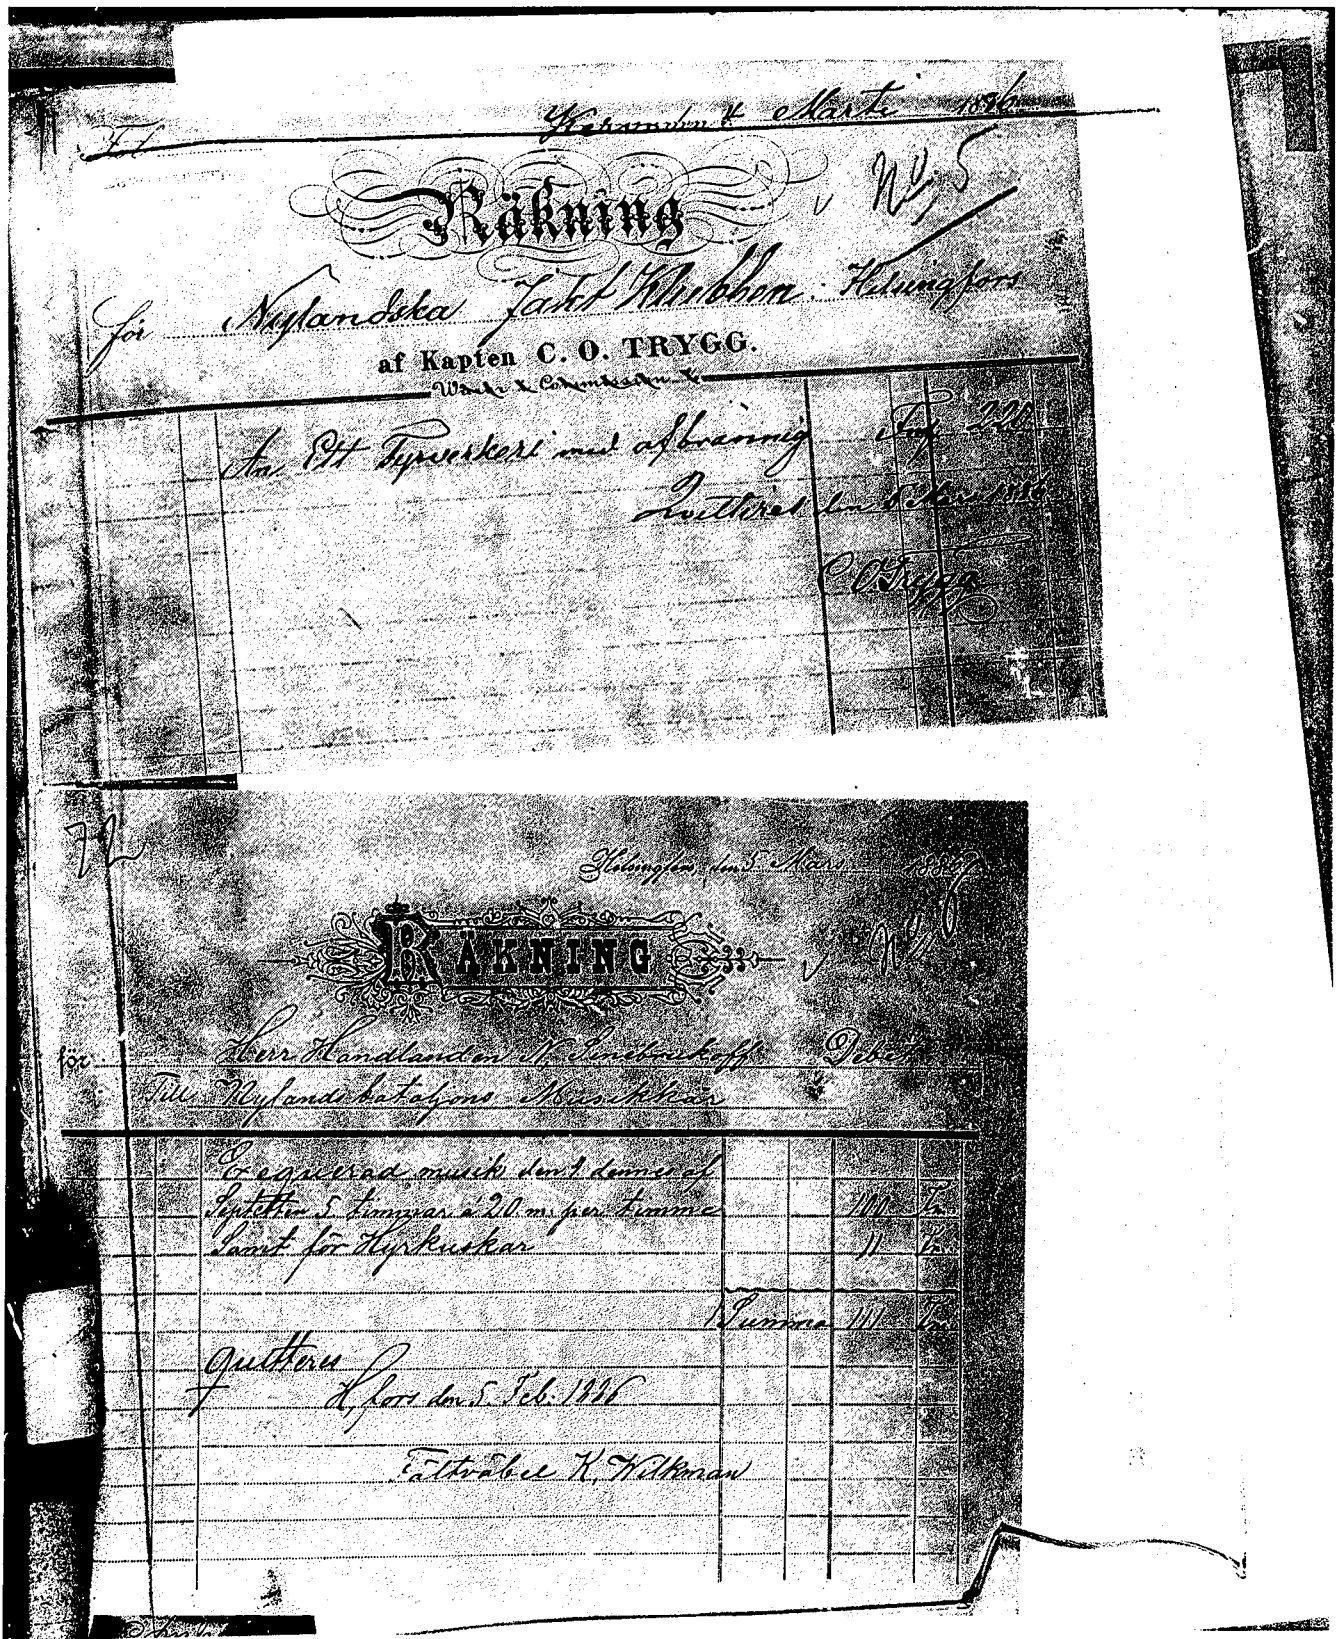 Fol.
den 4 Marti 1886
No. 5
Räkning
för Nylandska Jakt Klubben. Helsingfors
af Kapten C. O. TRYGG.
An Ett Fyrverkeri med afbränning Fmk 220
Qvitteras den 5 Mars 1886
C O Trygg
72
Helsingfors, den 5 Mars 1886
No. 6
RÄKNING
för Herr Handlanden N. Sinebrukoff Debet
Till Nylands bataljons Musikkår
Exequerad musik den 4 dennes af
Septetten 5 timmar á 20 m. per timme 100 Fm
Samt för Hyrkuskar 11 Fm
Summa 111 Fm
Quitteres
H,fors den 5. Feb. 1886
Fältväbel K. Wilkman